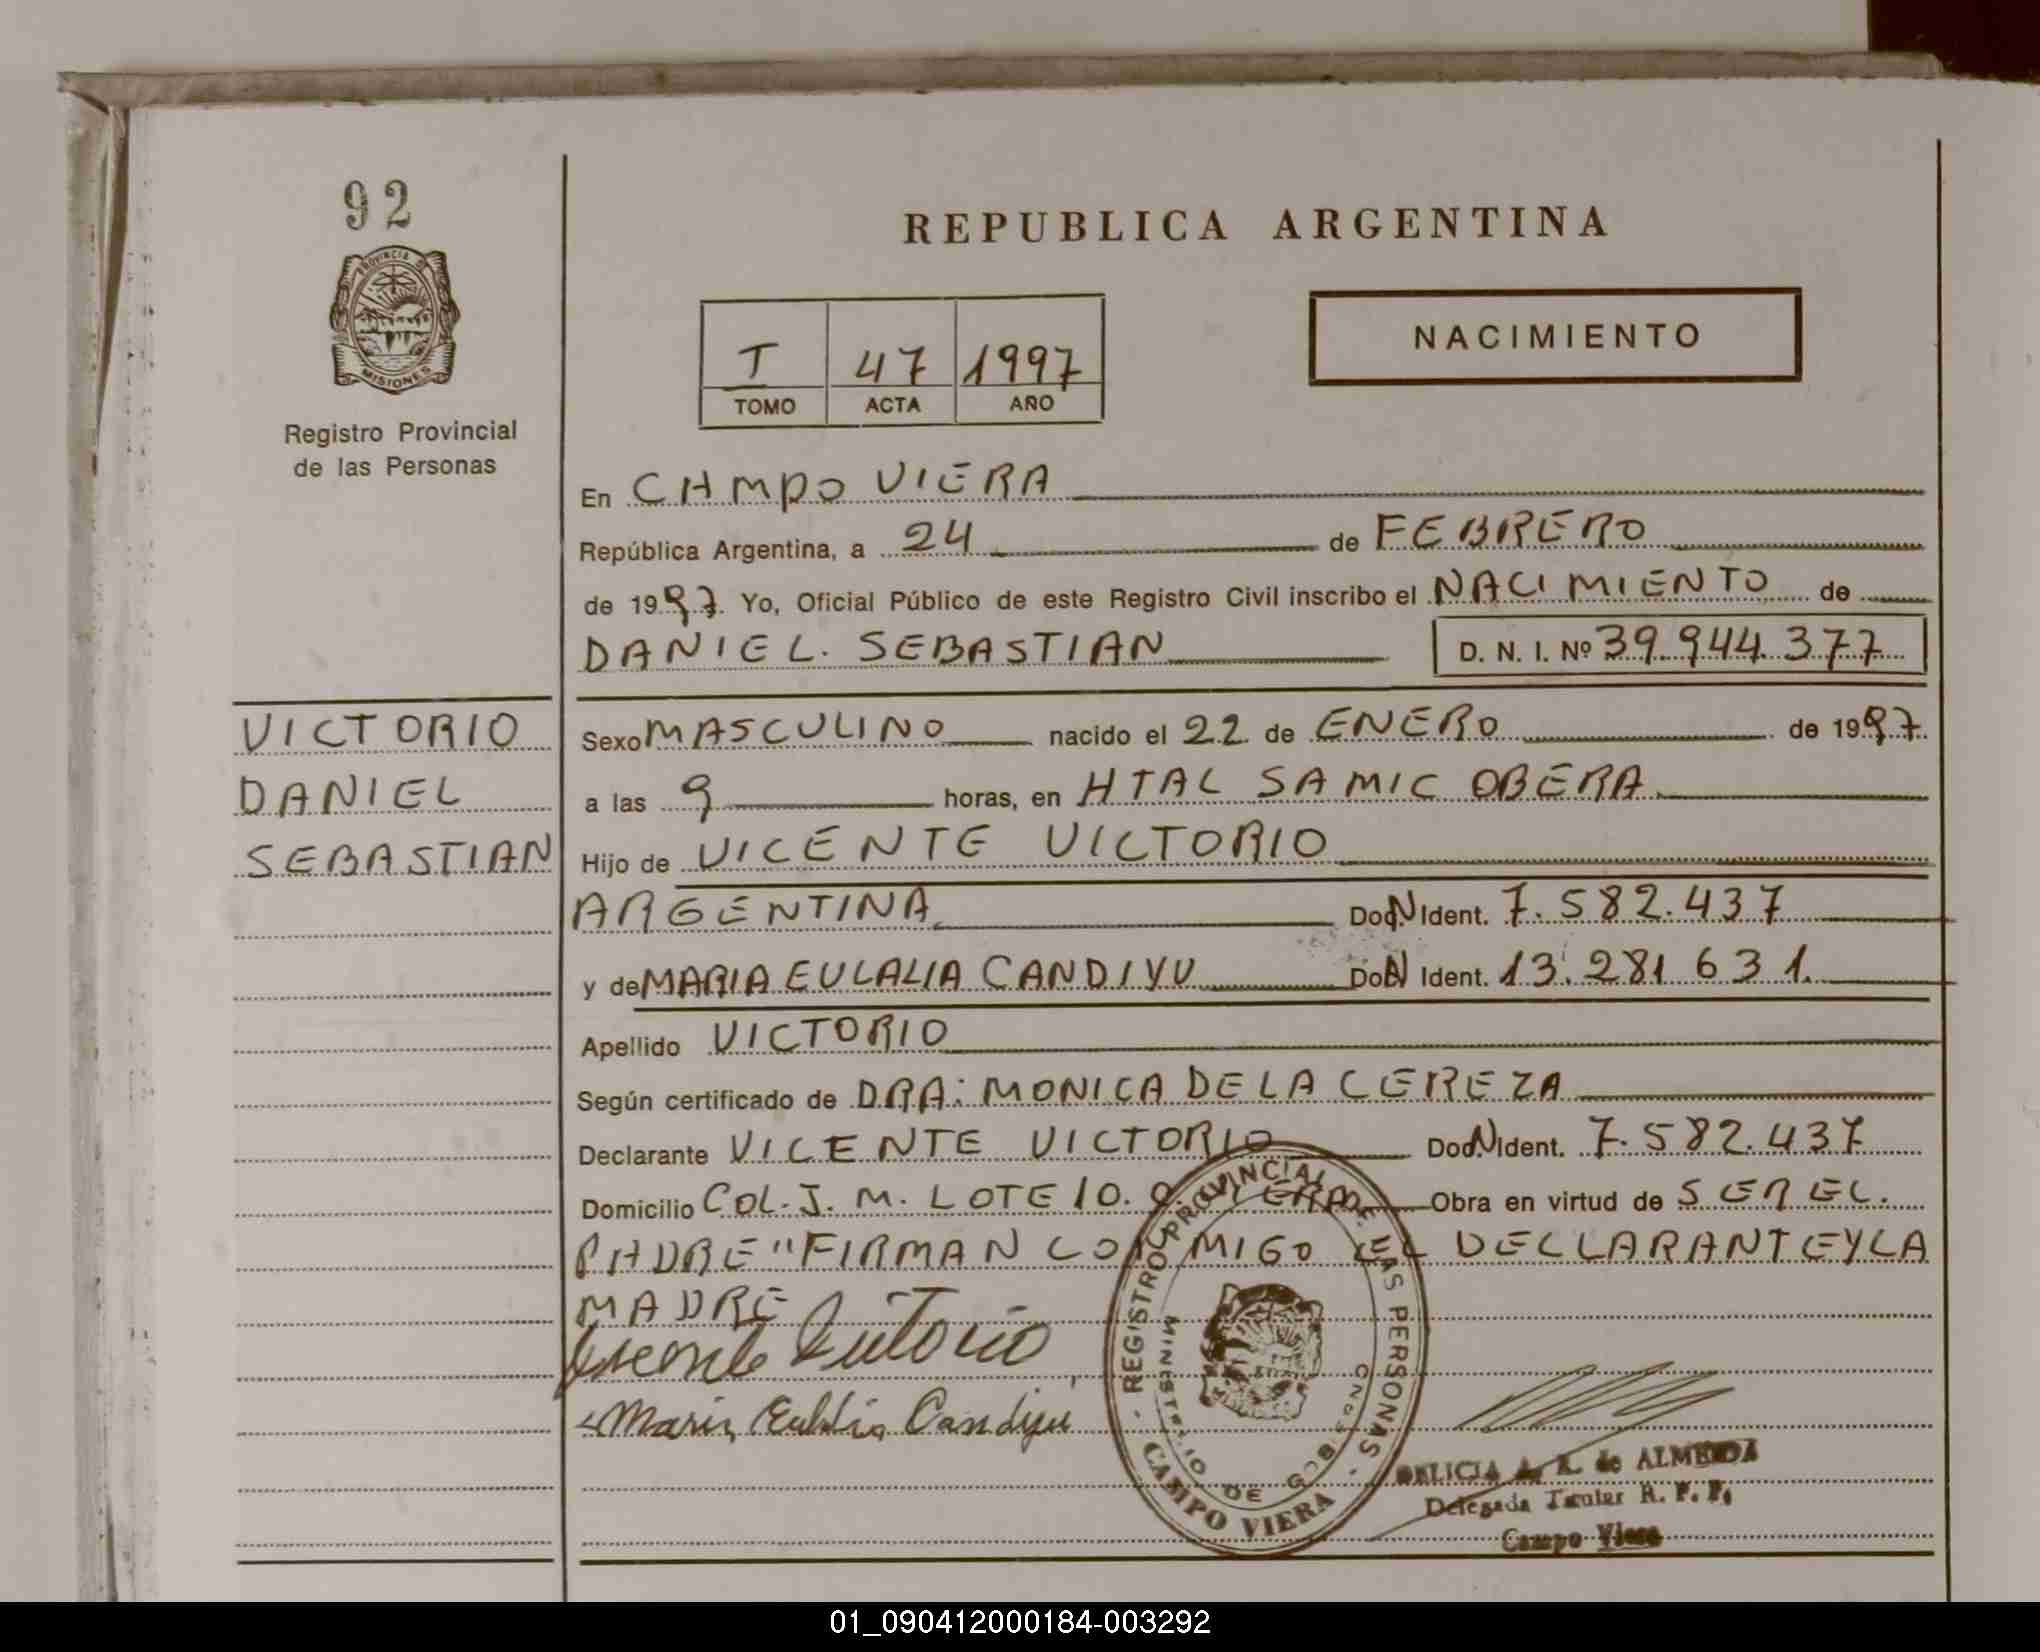 92
PROVINCIA DE
MISIONES
Registro Provincial
de las Personas
REPUBLICA ARGENTINA
T 47 1997
TOMO ACTA AÑO
NACIMIENTO
En CAMPO VIERA
República Argentina, a 24 de FEBRERO
de 1997. Yo, Oficial Público de este Registro Civil inscribo el NACIMIENTO de
DANIEL. SEBASTIAN D. N. I. Nº 39.944.377
VICTORIO
DANIEL
SEBASTIAN
Sexo MASCULINO nacido el 22 de ENERO de 1997.
a las 9 horas, en HTAL SAMIC OBERA
Hijo de VICENTE VICTORIO
ARGENTINA Doc. N Ident. 7.582.437
y de MARIA EULALIA CANDIYU Doc. N Ident. 13.281.631.
Apellido VICTORIO
Según certificado de DRA: MONICA DE LA CEREZA
Declarante VICENTE VICTORIO Doc. N Ident. 7.582.437
Domicilio COL. J. M. LOTE 10. C. VIERA Obra en virtud de SER EL.
PADRE" FIRMAN CON MIGO EL DECLARANTE Y LA
MADRE
Vicente Victorio
Maria Eulalia Candiyu
REGISTRO PROVINCIAL DE LAS PERSONAS
MINISTERIO DE GOB
CAMPO VIERA
DELICIA A. R. de ALMEIDA
Delegada Titular R. P. P.
Campo Viera
01_090412000184-003292